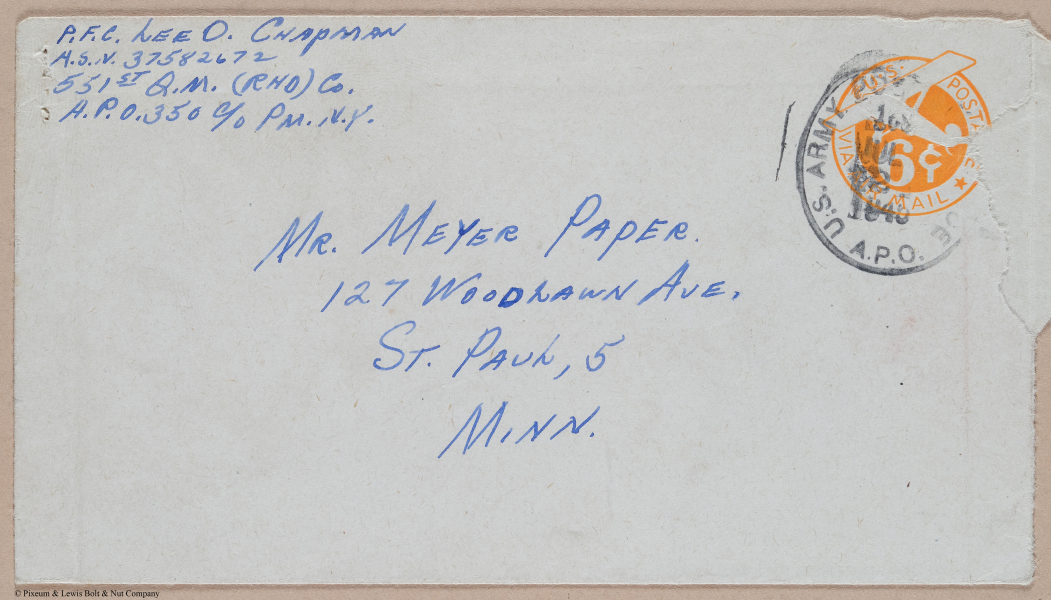 P.F.C. LEE O. CHAPMAN
A.S.N. 37582672
551ST Q.M. (RHD) Co.
A.P.O. 350 C/O P.M. N.Y.
U.S. ARMY POS
1945
A.P.O.
U.S. POSTA
VIA MAIL
6¢
MR. MEYER PAPER.
127 WOODLAWN AVE.
ST. PAUL, 5
MINN.
© Pixeum & Lewis Bolt & Nut Company